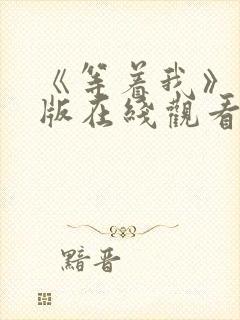 《等着我》
版在线觀看
黯晋